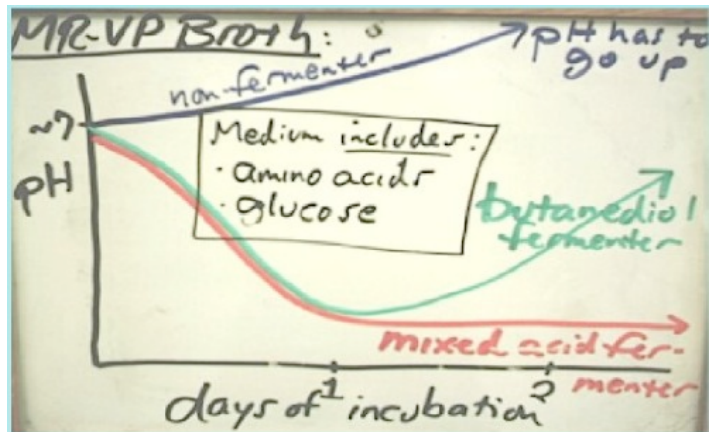 MR-VP Broth:
pH has to
go up
non-fermenter
~7
pH
Medium includes:
· amino acids
· glucose
butanediol
fermenter
mixed acid fer-
menter
1
2
days of incubation